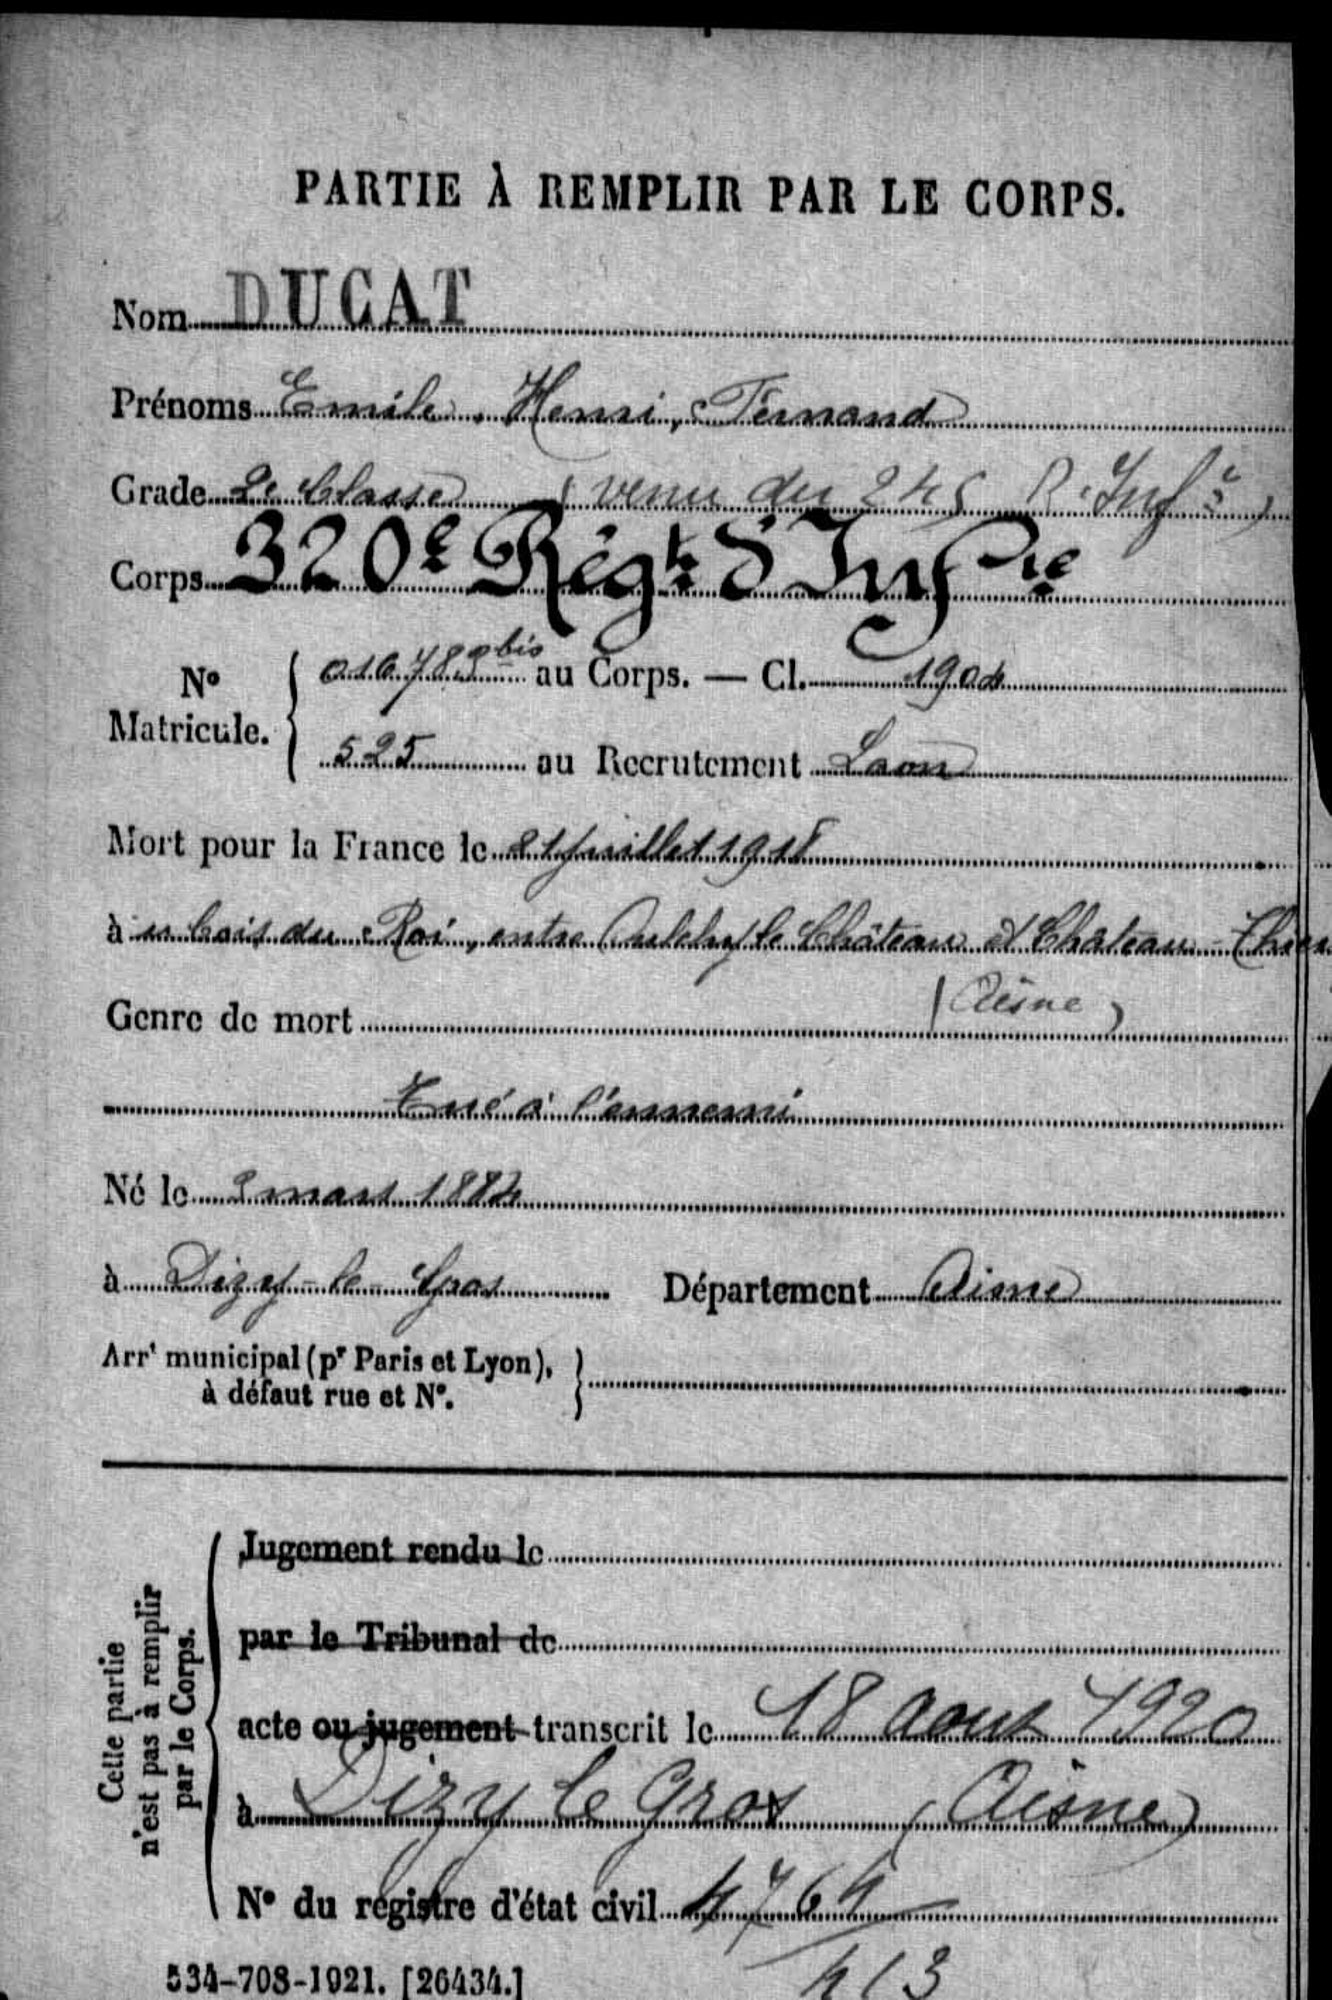 PARTIE À REMPLIR PAR LE CORPS.
Nom DUCAT
Prénoms Emile, Henri, Fernand
Grade 2e Classe (venu du 245 R. Infie)
Corps 320e Régt d'Infrie
No Matricule. 016783 bis au Corps. — Cl. 1904
525 au Recrutement Laon
Mort pour la France le 21 juillet 1918
à au bois du Roi, entre Oulchy le Château et Château-Thier
(Aisne)
Genre de mort
Tué à l'ennemi
Né le 2 mars 1884
à Dizy-le-Gros Département Aisne
Arrt municipal (pr Paris et Lyon),
à défaut rue et No.
Cette partie
n'est pas à remplir
par le Corps.
Jugement rendu le
par le Tribunal de
acte ou jugement transcrit le 18 aout 1920
à Dizy le Gros (Aisne)
No du registre d'état civil 4764
413
534-708-1921. [26434.]